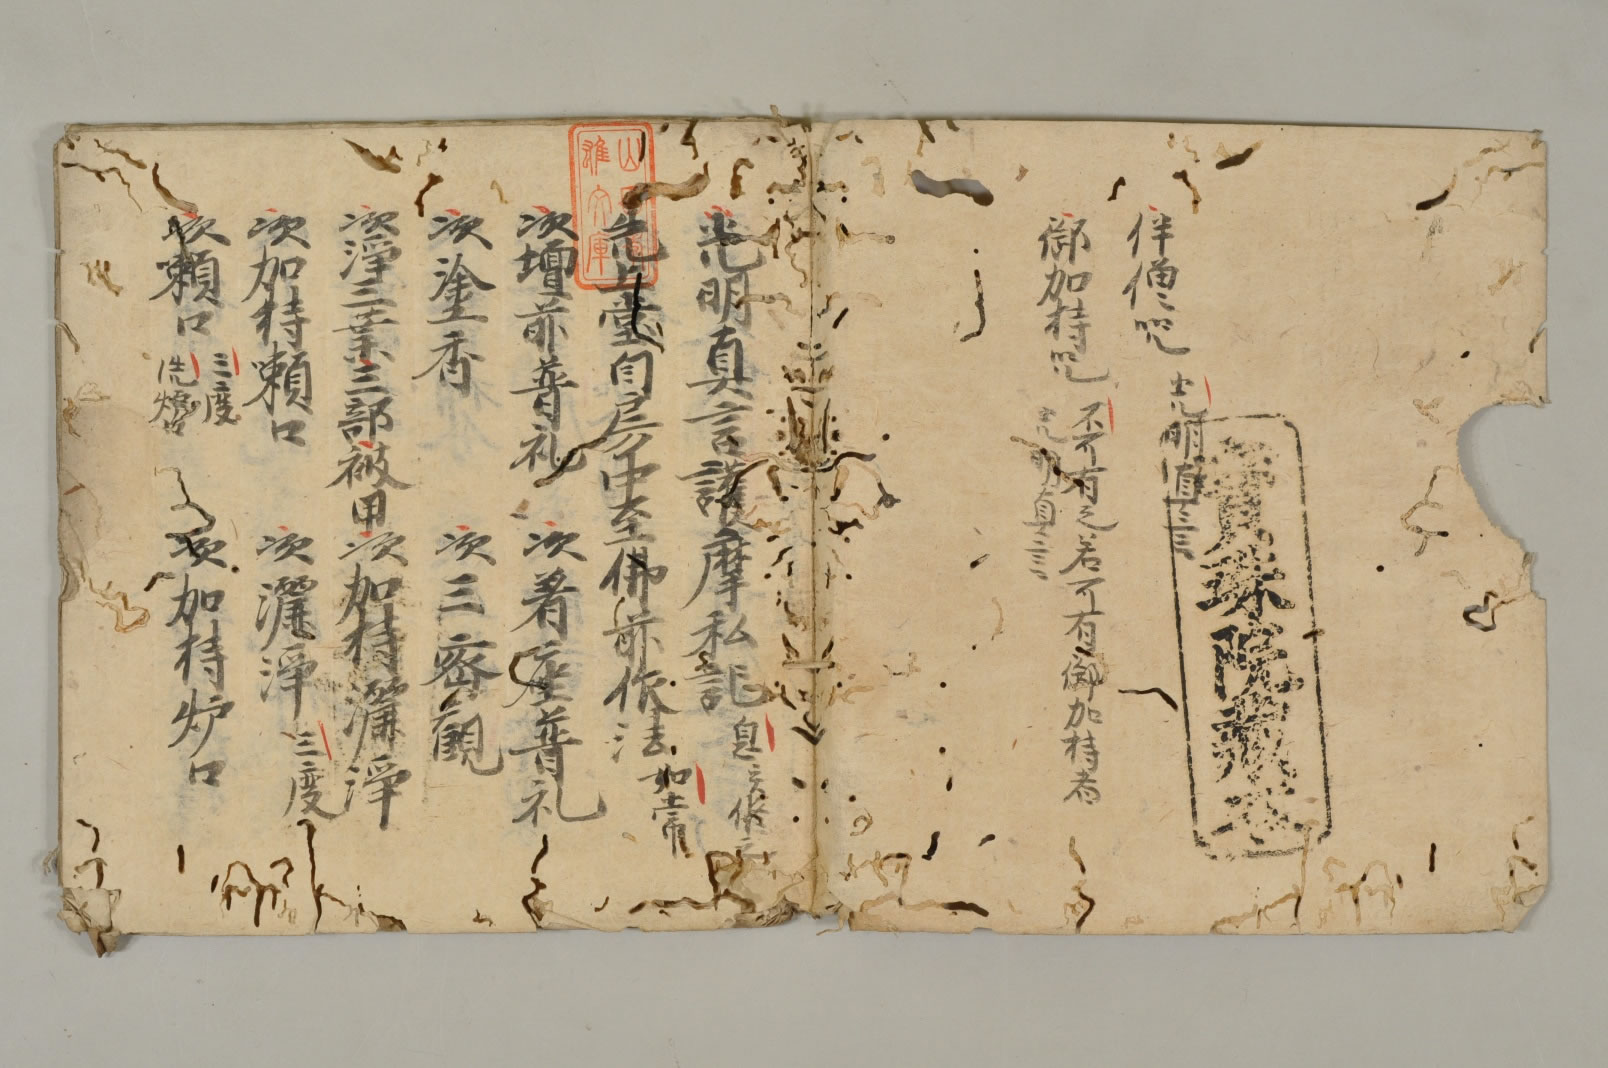 寶珠院藏本
伴僧呪 光明真言
御加持呪 不可有之若可有御加持者
光明真言
光明真言護摩私記 息災修之
先上堂自房中至佛前作法 如常
次壇前普礼 次着座普礼
次塗香 次三密観
次淨三業三部被甲 次加持灑淨
次加持嗽口 次灑淨 三度
次嗽口 三度
洗爐口 次加持炉口